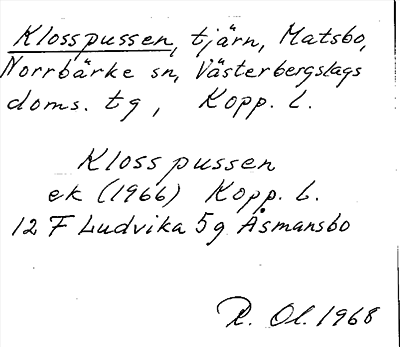 Klosspussen, tjärn, Matsbo,
Norrbärke sn, Västerbergslags
doms. tg, Kopp. l.
Klosspussen
ek (1966) Kopp. l.
12 F Ludvika 5g Åsmansbo
R. Ol. 1968